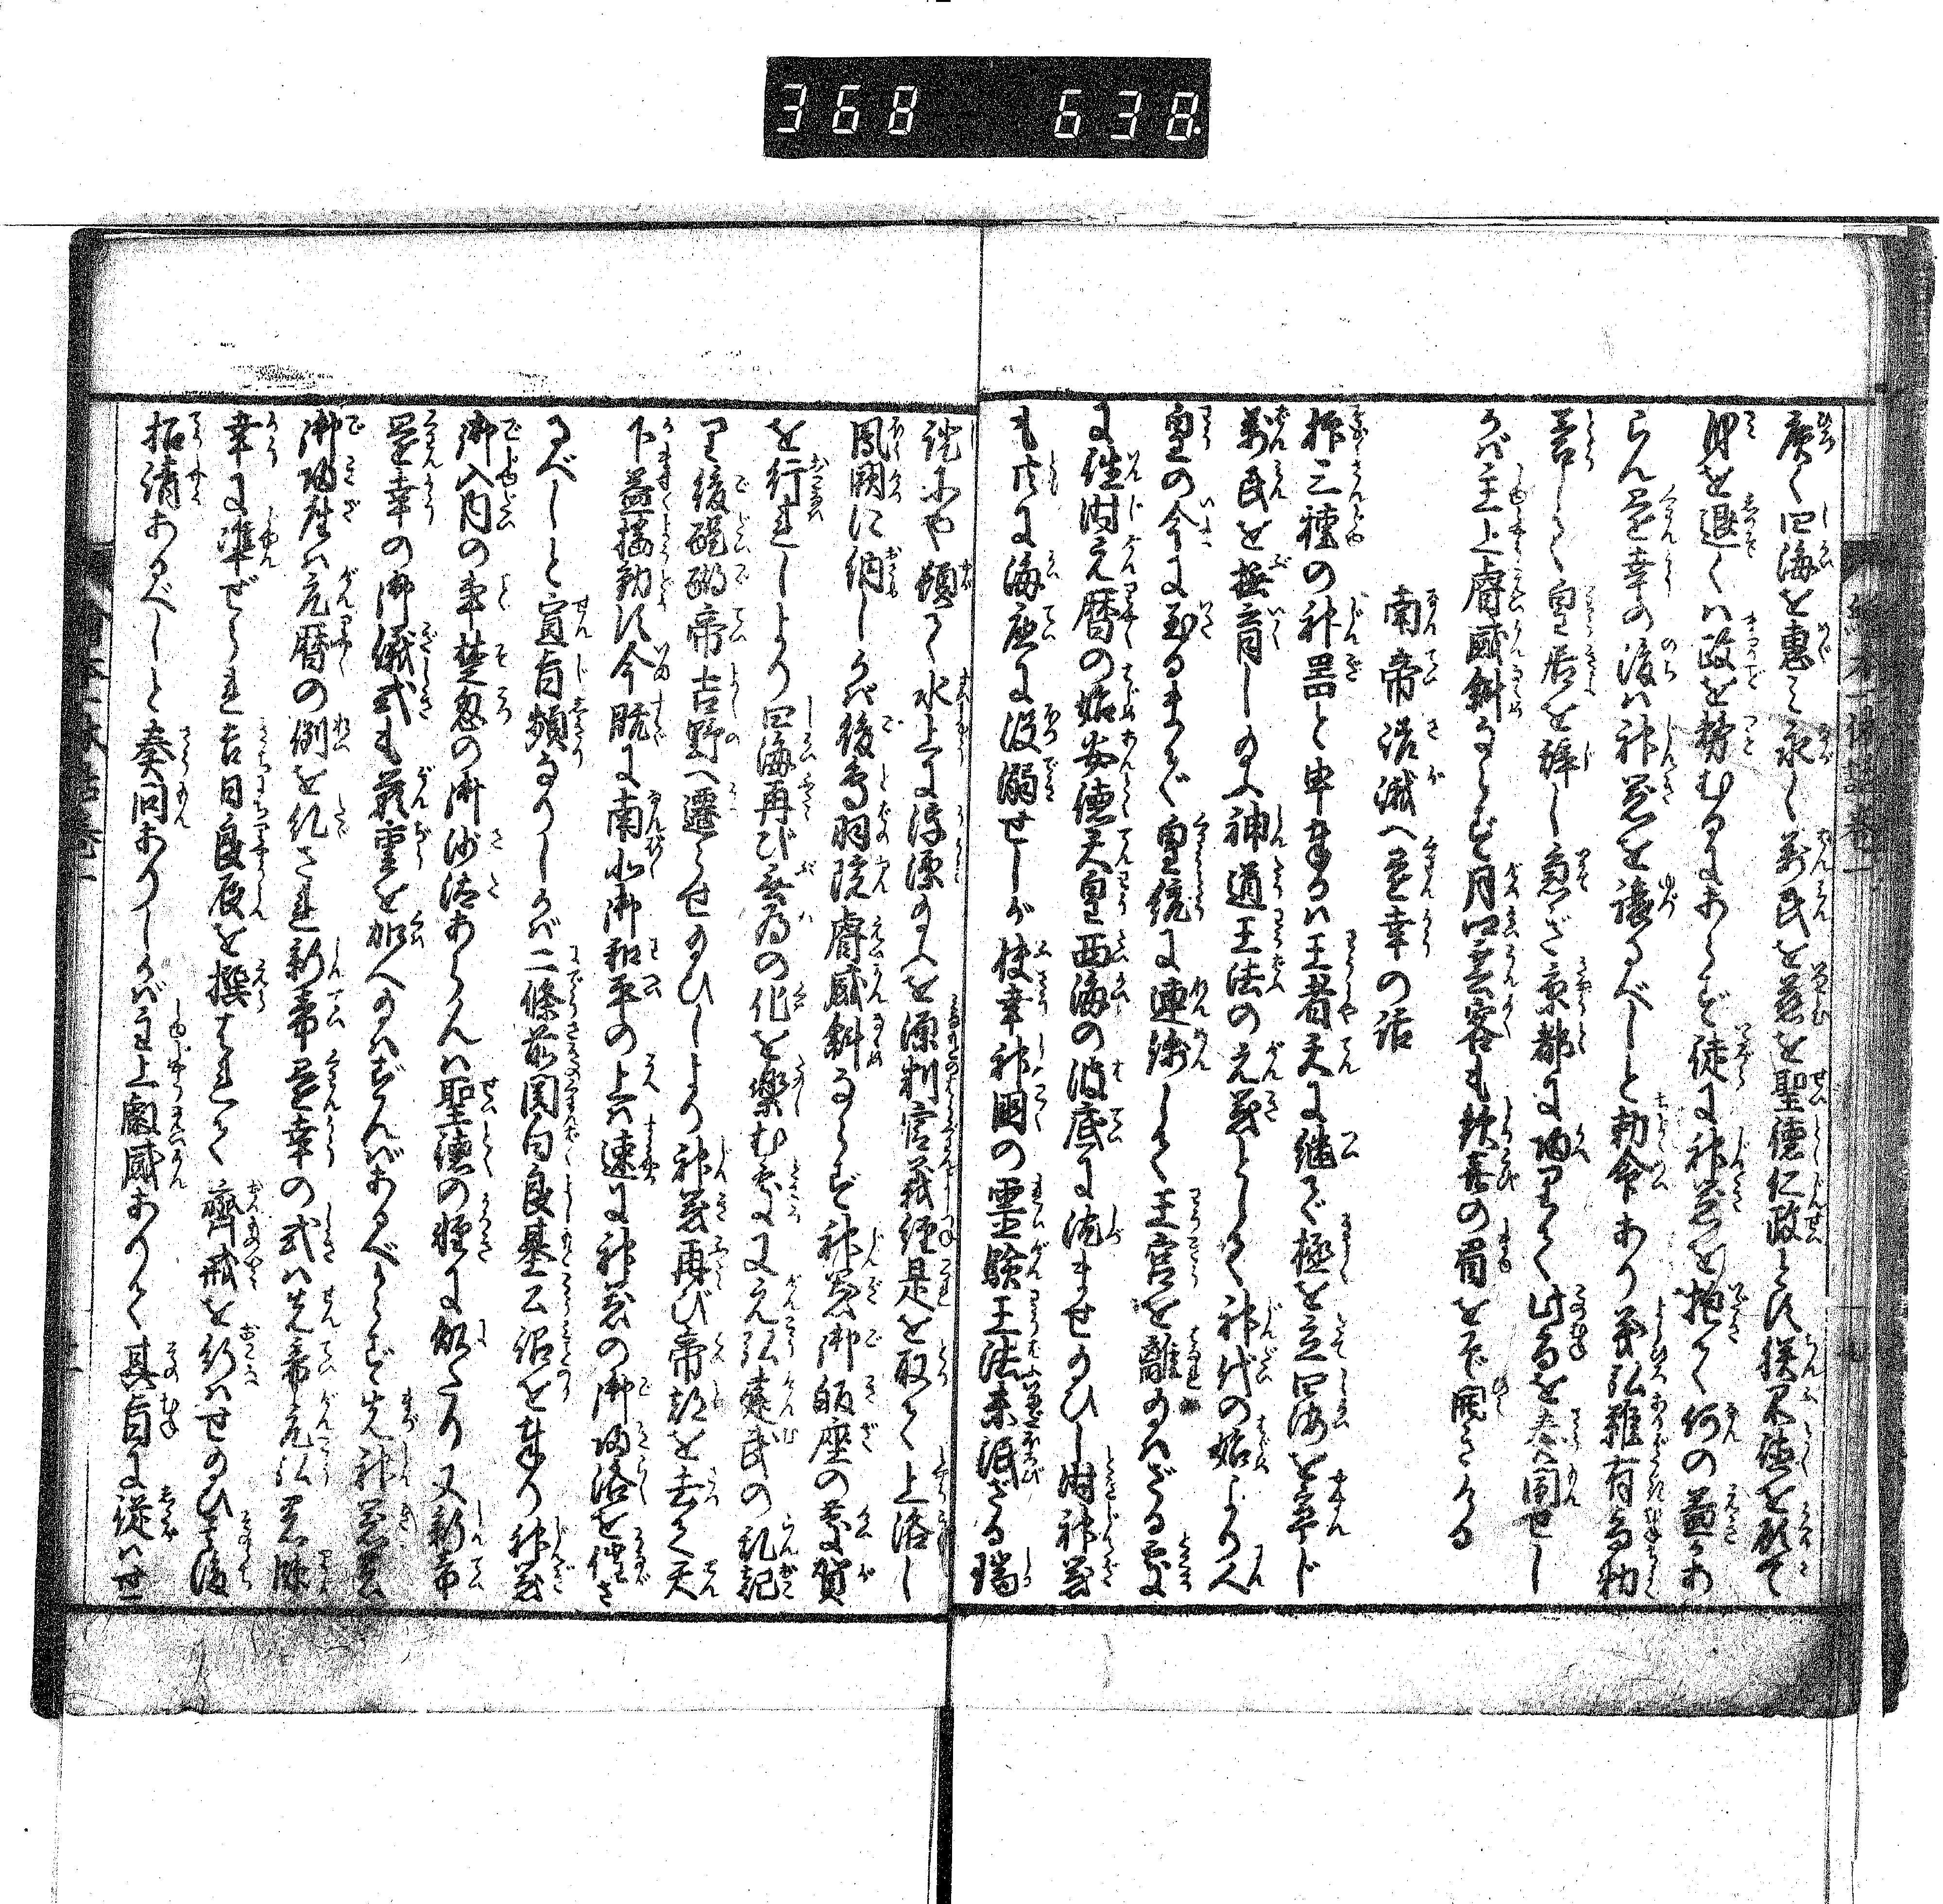 368 638
廣く四海を惠み永く万民を慈を聖徳仁政とす朕不徳を顧て
躬を退くは政を勞むるにあらず徒に神器を抱て何の益かあ
らん還幸の後は神器を譲るべしと勅命あり義弘難有き勅
答しく皇居を辞し急ぎ京都に帰りて此旨を奏聞せし
かば主上睿感斜ならず月卿雲客も歓喜の眉をぞ開きける
南帝洛滅へ還幸の話
抑三種の神器と申奉るは王者天に継で極を立四海を平じ
万民を撫育し給ふ神道王法の元器として神代の始より人
皇の今に至るまで皇統に連綿して王宮を離給はざる処
に往時元暦の始安徳天皇西海の波底に沈ませ給ひし時神器
も共に海底に没溺せしが倖幸神国の霊験王法未泯ざる瑞
にや頓て水上に浮漂給ふを源判官義経是を取て上洛し
鳳闕に納しかば後鳥羽院睿感斜ならず神器御皈座の慶賀
を行れしより四海再び無為の化を樂む処に又元弘建武の乱起
り後醍醐帝吉野へ遷らせ給ひしより神器再び帝都を去て天
下益擾動す今既に南北御和平の上は速に神器の御帰洛を催さ
るべしと宣旨頻なりしかば二條前関白良基公詔を奉り神器
御入内の事楚忽の御沙汰あらんは聖徳の軽に似たり又新帝
還幸の御儀式も厳重を加へ給はずんばあるべからず先神器
御帰座は元暦の例を糺され新帝還幸の式は先帝元弘
幸に準ぜられ吉日良辰を撰まれて齊戒を行はせ給ひ其後
招請あるべしと奏問ありしかば主上睿感ありて其旨に従はせ